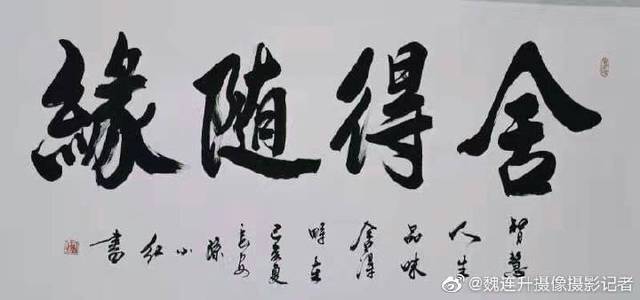 舍得随緣
智慧
人生
品味
舍得
時在
己亥夏
長安
小
红
書
@魏连升摄像摄影记者